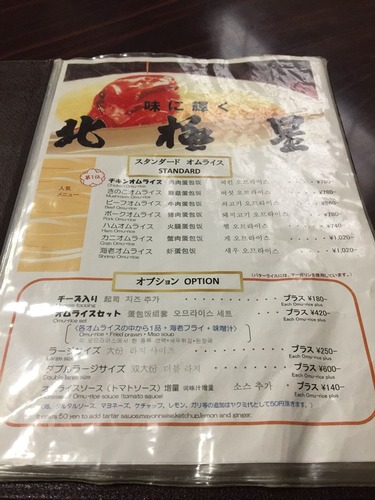 味に輝く
北極星
スタンダード オムライス
STANDARD
人気
メニュー
第1位
チキンオムライス 鸡肉蛋包饭 치킨 오므라이스 ¥780-
Chicken Omu-rice
きのこオムライス 蘑菇蛋包饭 버섯 오므라이스
Mushrooms Omu-rice
ビーフオムライス 牛肉蛋包饭 쇠고기 오므라이스
Beef Omu-rice
ポークオムライス 猪肉蛋包饭 돼지고기 오므라이스
Pork Omu-rice
ハムオムライス 火腿蛋包饭 햄 오므라이스
Ham Omu-rice
カニオムライス 蟹肉蛋包饭 게 오므라이스 ¥1,020-
Crab Omu-rice
海老オムライス 虾蛋包饭 새우 오므라이스 ¥1,020-
Shrimp Omu-rice
オプション OPTION
チーズ入り 起司 치즈 추가 プラス ¥180-
Cheese topping Each Omu-rice plus
オムライスセット 蛋包饭组套 오므라이스 세트 プラス ¥420-
Omu-rice set Each Omu-rice plus
(各オムライスの中から1品・海老フライ・味噌汁)
Omu-rice・Fried prawn・Miso soup
ラージサイズ 大份 라지 사이즈 プラス ¥250-
Large size Each Omu-rice plus
ダブルラージサイズ 双大份 더블 라지 プラス ¥600-
Double large size Each Omu-rice plus
オムライスソース(トマトソース)増量 소스 추가 プラス ¥140-
Omu-rice souce (tomato sauce) Each Omu-rice plus
タルタルソース、マヨネーズ、ケチャップ、レモン、ガリ等の追加はヤクミ代として50円頂きます。
50 yen to add tartar sauce,mayonnaise,ketchup,lemon and ginger.